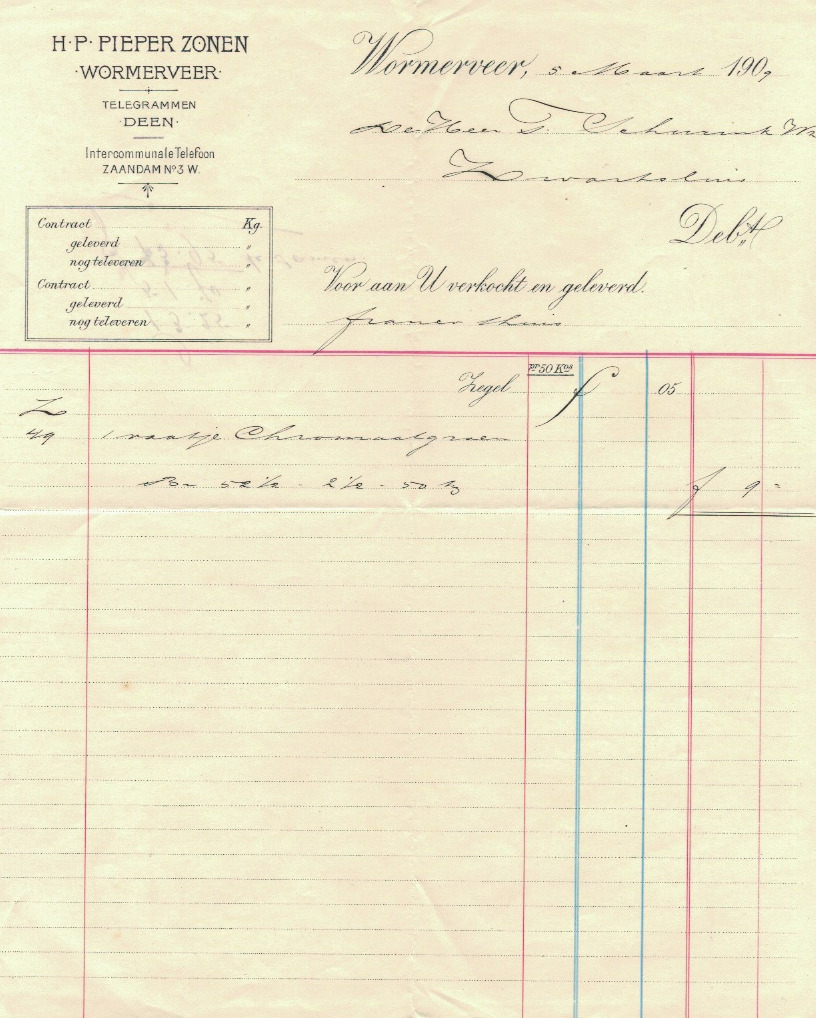 H. P. PIEPER ZONEN
·WORMERVEER·
TELEGRAMMEN
·DEEN·
Intercommunale Telefoon
ZAANDAM No 3 W.
Wormerveer, 5 Maart 1909
De Heer T. Schuurink Wz
Zwartsluis
Debt.
Contract Kg.
geleverd „
nog te leveren „
Contract „
geleverd „
nog te leveren „
Voor aan U verkocht en geleverd.
franco thuis
pr 50 Kos
Zegel f 05
Z
49 1 vaatje Chromaatgroen
Br 52½ - 2½ - 50 kg f 9 -